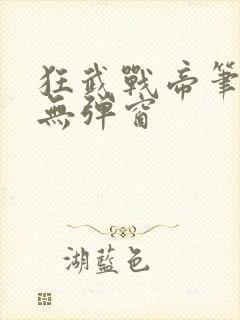 狂武戰帝筆
無彈窗
湖藍色